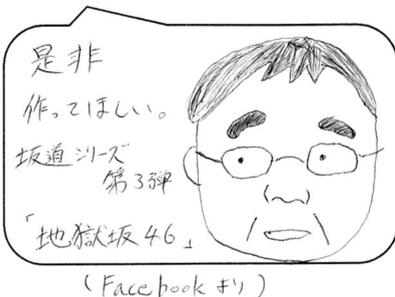 是非
作ってほしい。
坂道シリーズ
第3弾
「地獄坂46」
(Facebookより)